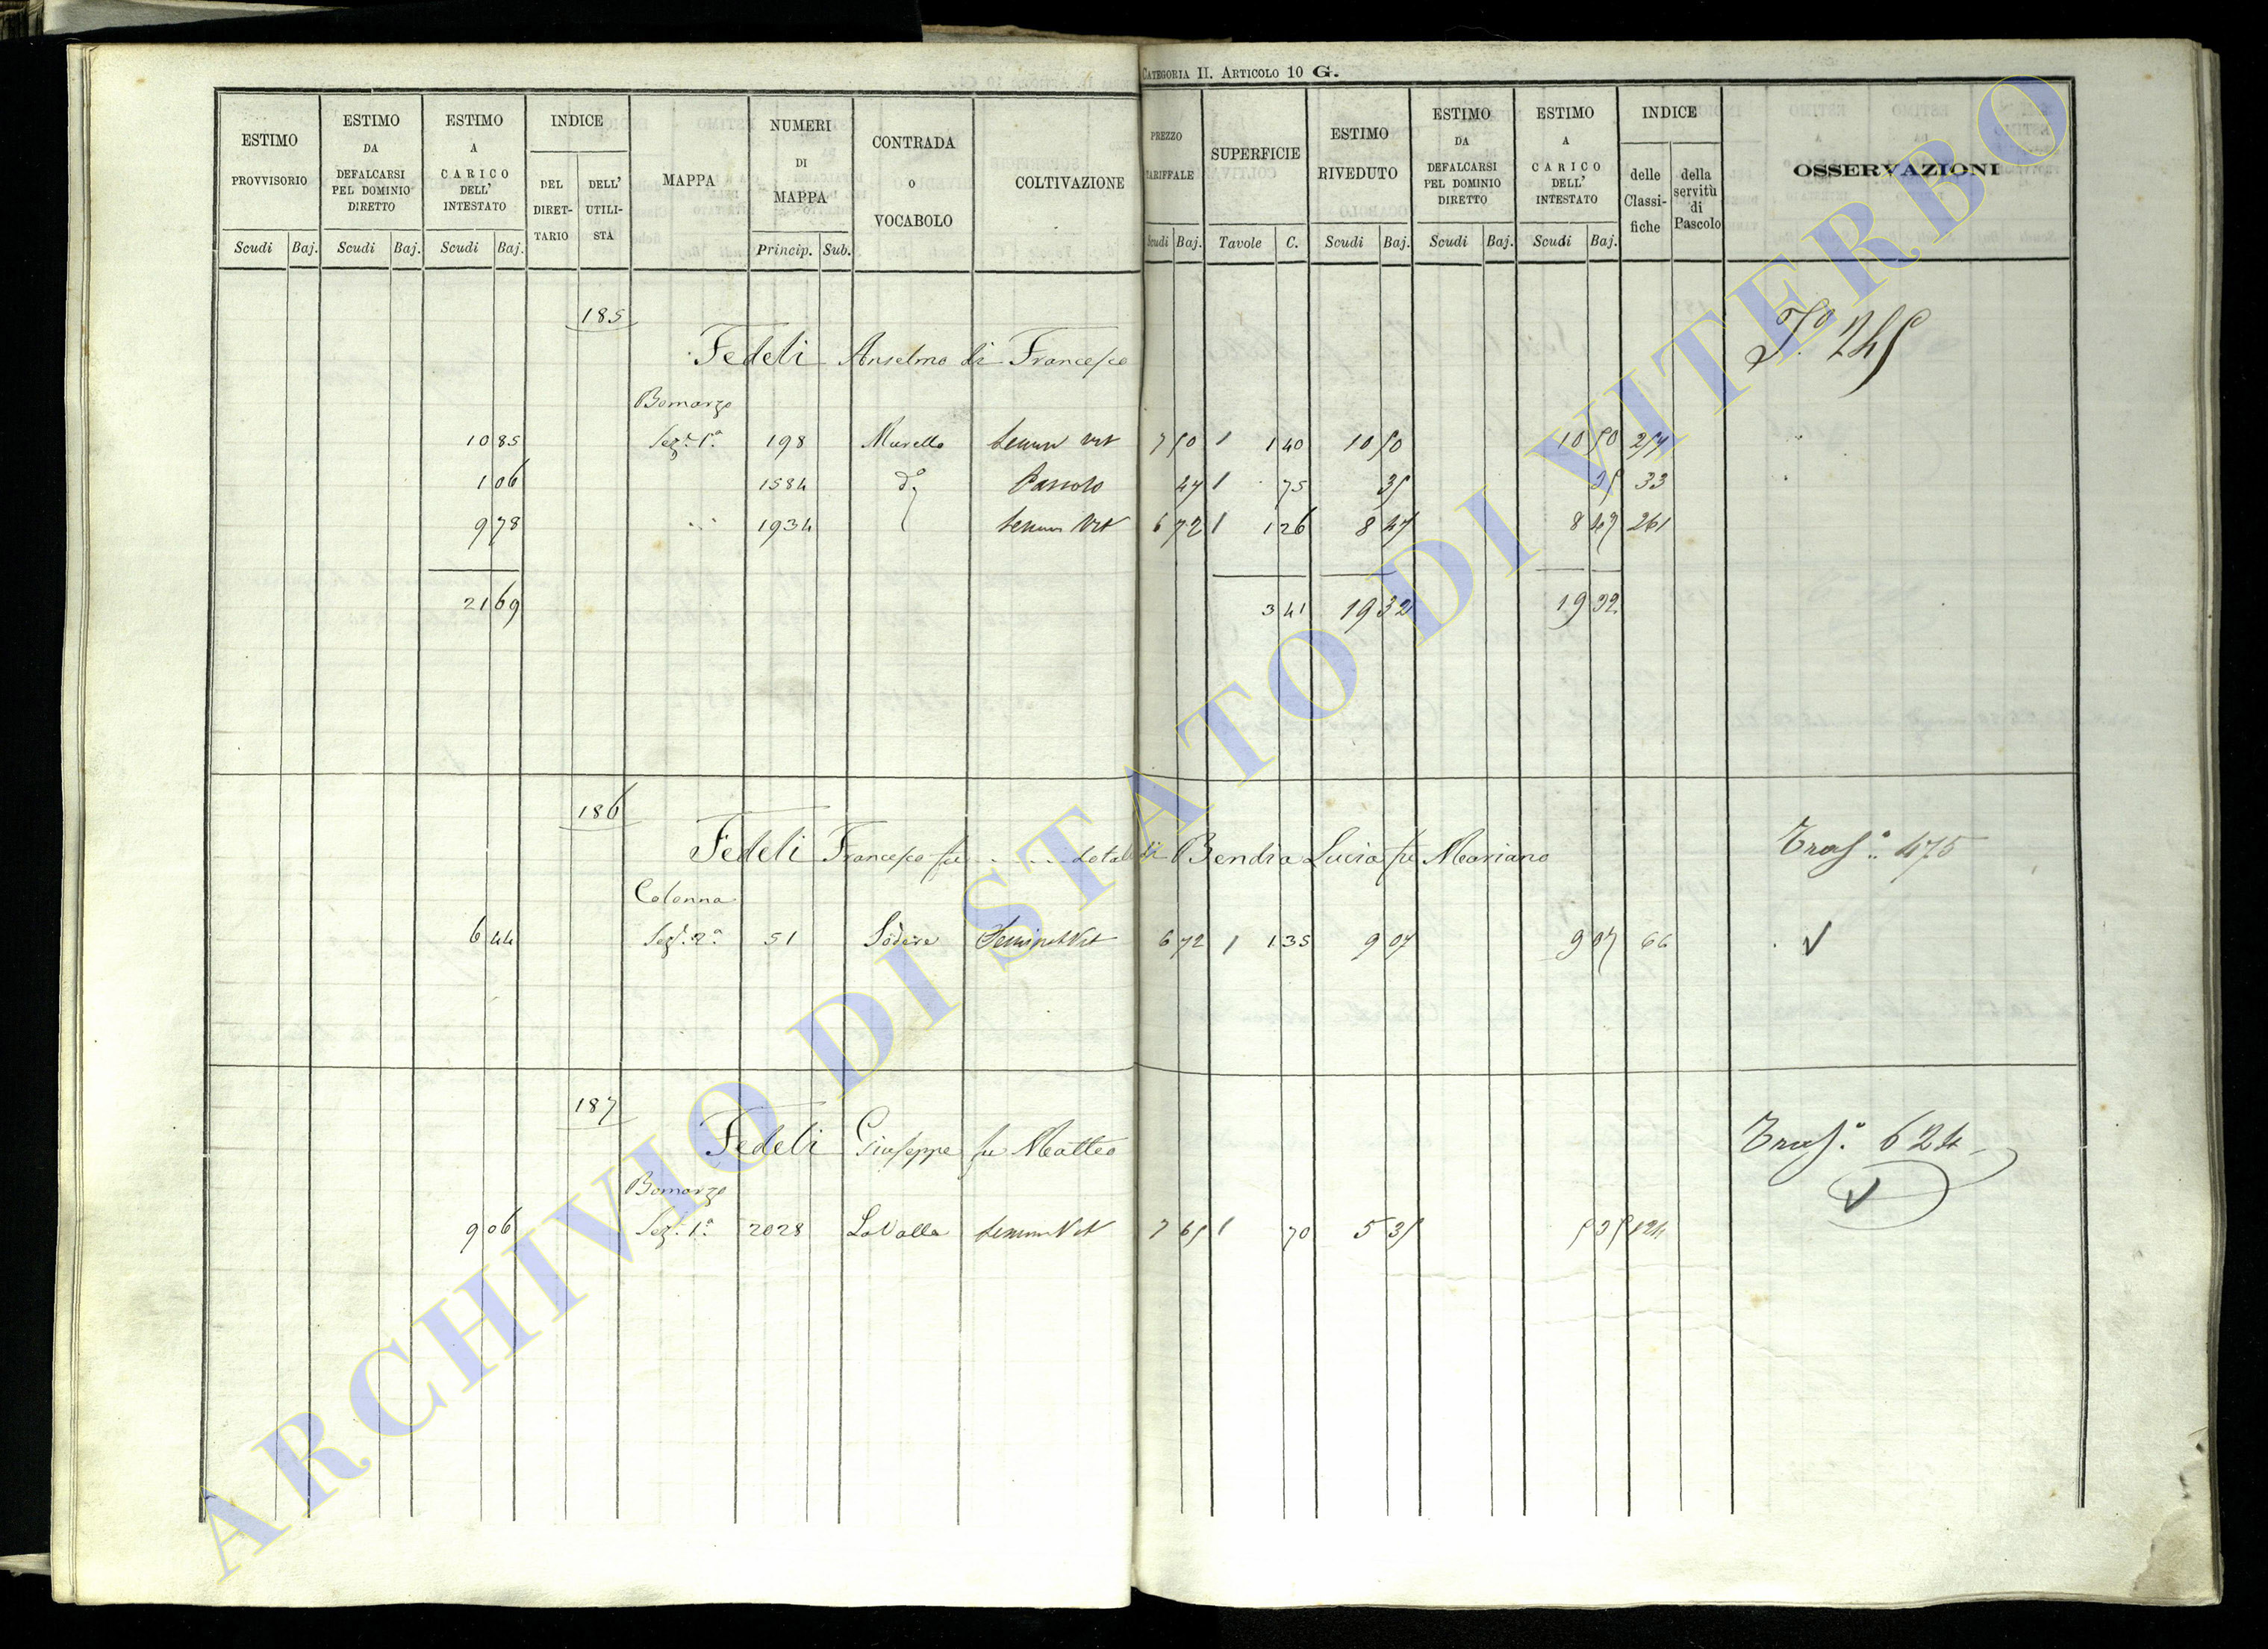 CATEGORIA II. ARTICOLO 10 G.
ESTIMO PROVVISORIO
ESTIMO DA DEFALCARSI PEL DOMINIO DIRETTO
ESTIMO A CARICO DELL' INTESTATO
INDICE
DEL DIRETTARIO
DELL' UTILISTA
MAPPA
NUMERI DI MAPPA
CONTRADA O VOCABOLO
COLTIVAZIONE
PREZZO TARIFFALE
SUPERFICIE
ESTIMO RIVEDUTO
ESTIMO DA DEFALCARSI PEL DOMINIO DIRETTO
ESTIMO A CARICO DELL' INTESTATO
INDICE
delle Classifiche
della servitù di Pascolo
OSSERVAZIONI
Scudi Baj. Scudi Baj. Scudi Baj. Princip. Sub. Scudi Baj. Tavole C. Scudi Baj. Scudi Baj. Scudi Baj.
185
Fedeli Anselmo di Francesco
Bomarzo
10 85 Sez.e 1a 198 Murella 7 50 1 1 40 10 50 10 50 254
1 06 1584 do Pascolo 47 1 75 35 35 33
9 78 1934 6 72 1 1 26 8 47 8 47 261
21 69 3 41 19 32 19 32
186
Fedeli Francesco fu dotali di Bendia Lucia fu Mariano Trasf.o 475
Colonna
6 44 Sez.e 2a 51 6 72 1 1 35 9 07 9 07 66
187
Fedeli Giuseppe fu Matteo Trasf.o 624
Bomarzo
9 06 Sez.e 1a 2028 La Valle 7 65 1 70 5 35 5 35 124
ARCHIVIO DI STATO DI VITERBO